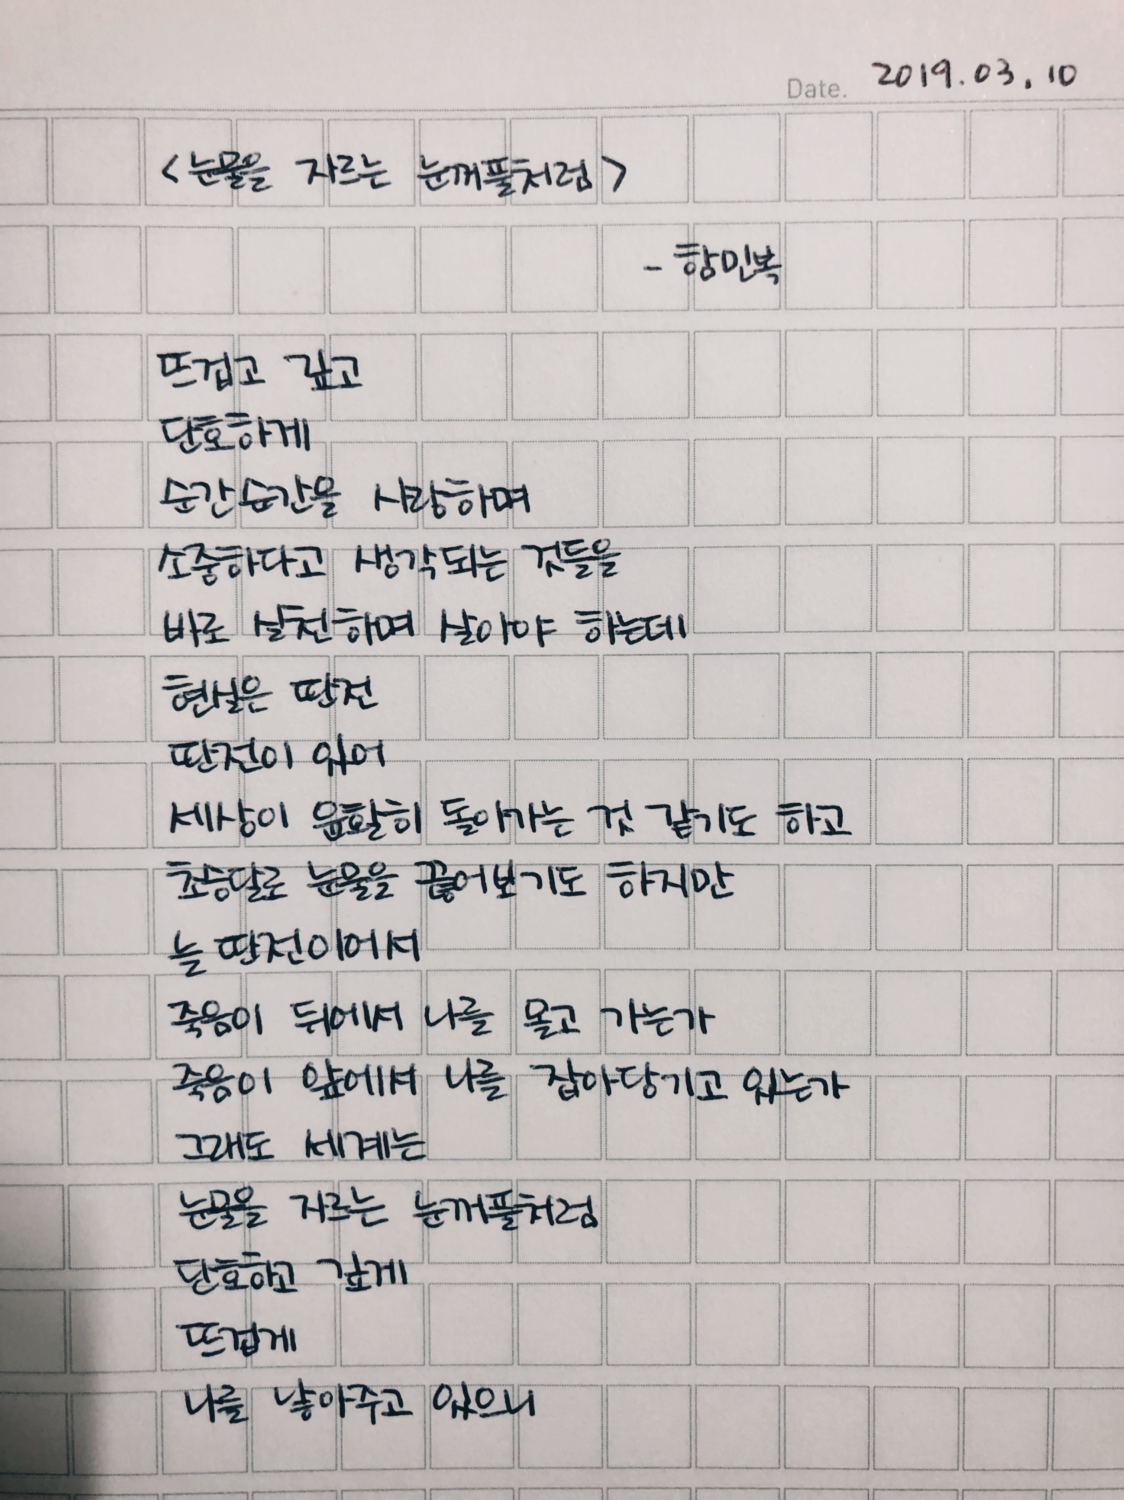 Date. 2019.03.10
<눈물을 자르는 눈꺼풀처럼>
- 함민복
뜨겁고 깊고
단호하게
순간순간을 사랑하며
소중하다고 생각되는 것들을
바로 실천하며 살아야 하는데
현실은 딴전
딴전이 있어
세상이 윤활히 돌아가는 것 같기도 하고
초승달로 눈물을 끊어보기도 하지만
늘 딴전이어서
죽음이 뒤에서 나를 몰고 가는가
죽음이 앞에서 나를 잡아당기고 있는가
그래도 세계는
눈물을 자르는 눈꺼풀처럼
단호하고 깊게
뜨겁게
나를 낳아주고 있으니